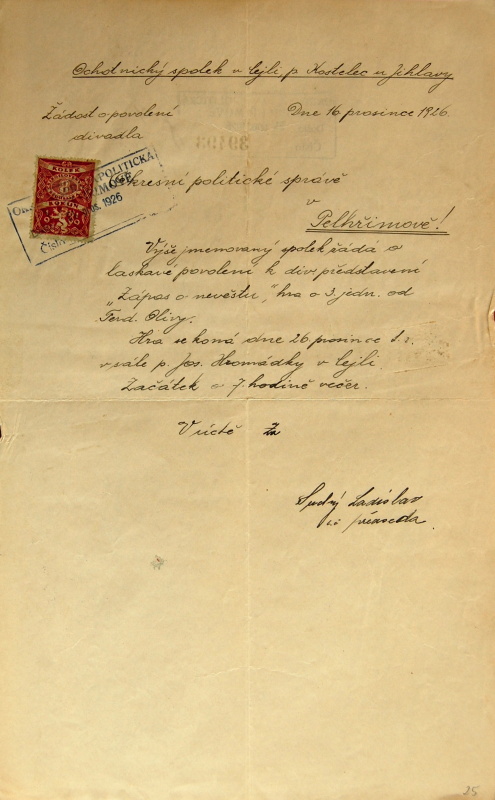 Ochotnický spolek v Cejli, p. Kostelec u Jihlavy
Žádost o povolení
divadla
Dne 16 prosince 1926.
39493
Okresní politické správě
v
Pelhřimově!
Výše jmenovaný spolek žádá o
laskavé povolení k div. představení
„Zápas o nevěstu," hra o 3. jedn. od
Ferd. Olivy.
Hra se koná dne 26 prosince t. r.
v sále p. Jos. Hromádky v Cejli.
Začátek o 7. hodině večer.
V úctě za
Ladislav
předseda
25